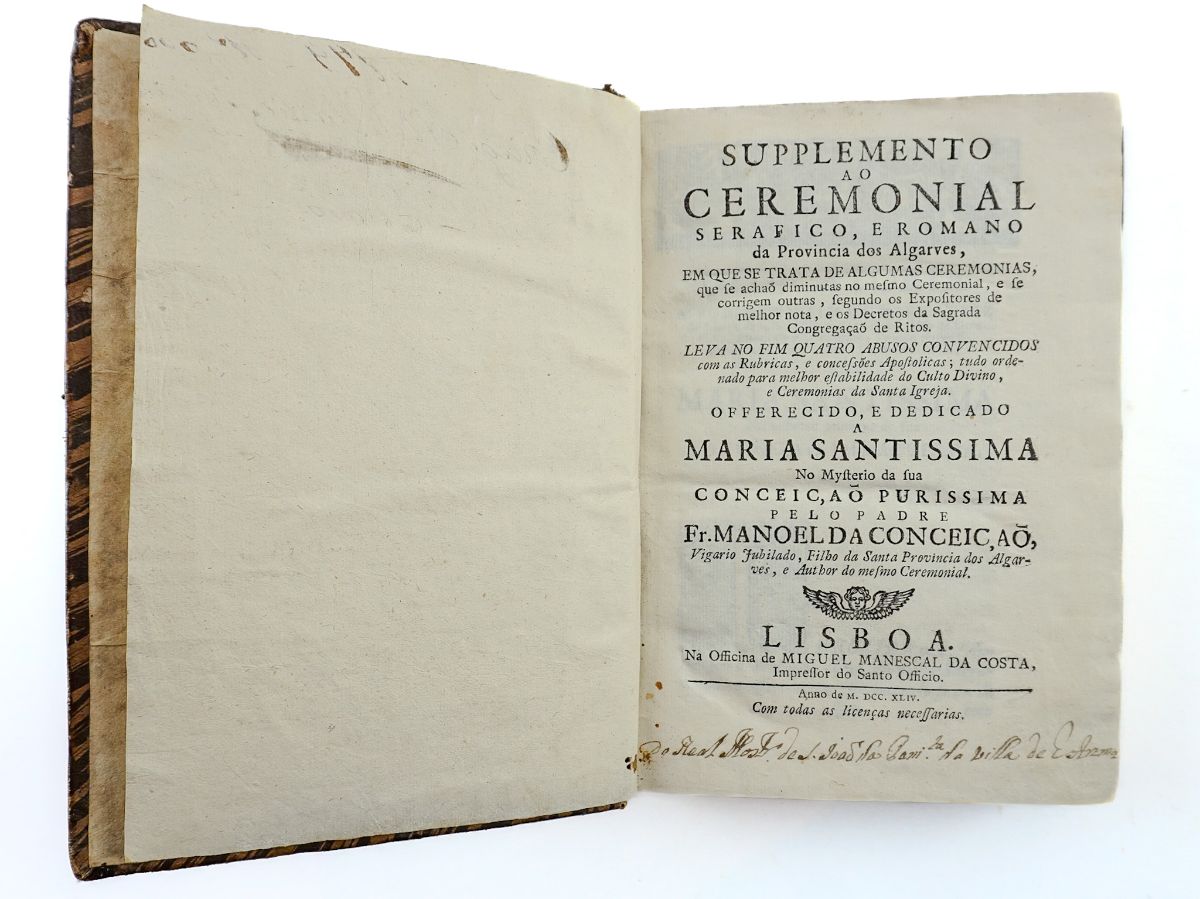 SUPPLEMENTO
AO
CEREMONIAL
SERAFICO, E ROMANO
da Provincia dos Algarves,
EM QUE SE TRATA DE ALGUMAS CEREMONIAS,
que ſe achaõ diminutas no meſmo Ceremonial, e ſe
corrigem outras, ſegundo os Expoſitores de
melhor nota, e os Decretos da Sagrada
Congregaçaõ de Ritos.
LEVA NO FIM QUATRO ABUSOS CONVENCIDOS
com as Rubricas, e conceſsões Apoſtolicas; tudo orde-
nado para melhor eſtabilidade do Culto Divino,
e Ceremonias da Santa Igreja.
OFFERECIDO, E DEDICADO
A
MARIA SANTISSIMA
No Myſterio da ſua
CONCEIC,AÕ PURISSIMA
PELO PADRE
Fr. MANOEL DA CONCEIC,AÕ,
Vigario Jubilado, Filho da Santa Provincia dos Algar-
ves, e Author do meſmo Ceremonial.
LISBOA.
Na Officina de MIGUEL MANESCAL DA COSTA,
Impreſſor do Santo Officio.
Anno de M. DCC. XLIV.
Com todas as licenças neceſſarias.
Do Real Mostº de S. Joaõ da Penitª da villa de Estremoz